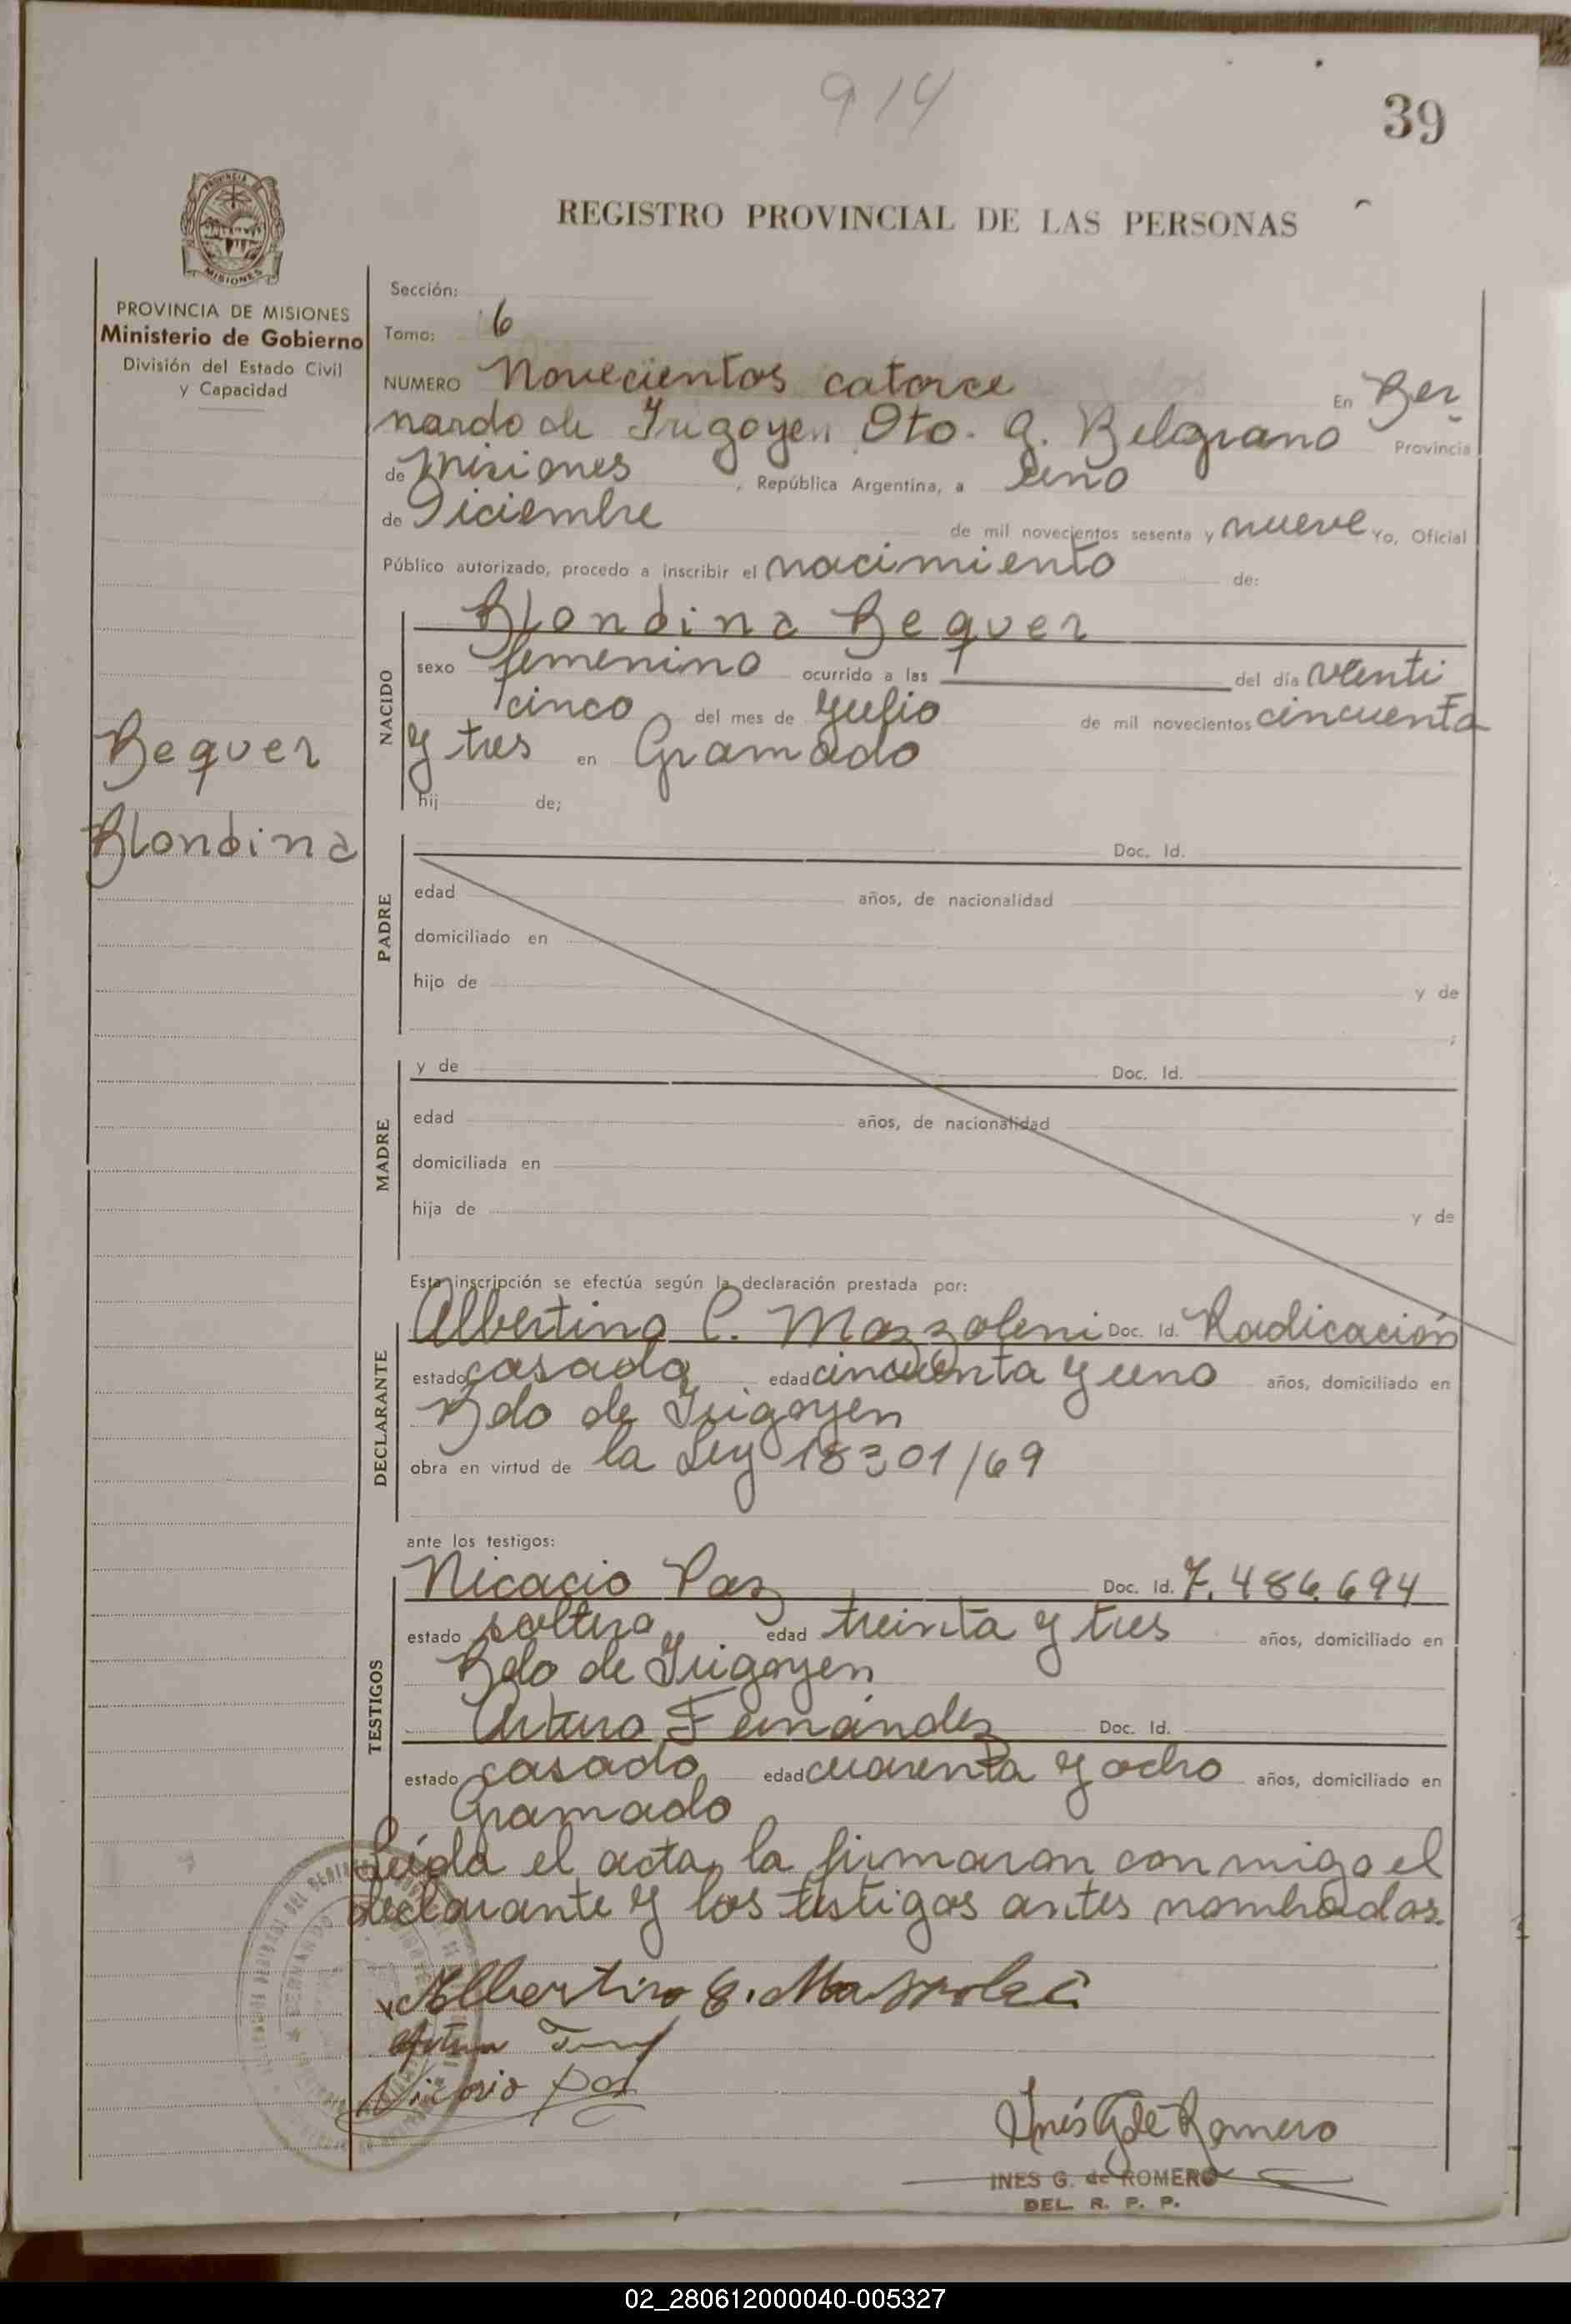 914
39
REGISTRO PROVINCIAL DE LAS PERSONAS
PROVINCIA DE
MISIONES
PROVINCIA DE MISIONES
Ministerio de Gobierno
División del Estado Civil
y Capacidad
Sección:
Tomo: 6
NUMERO Novecientos catorce En Ber
nardo de Irigoyen Dto. G. Belgrano Provincia
de Misiones, República Argentina, a uno
de Diciembre de mil novecientos sesenta y nueve Yo, Oficial
Público autorizado, procedo a inscribir el nacimiento de:
NACIDO
Blondina Bequer
sexo femenino ocurrido a las del día venti
cinco del mes de Julio de mil novecientos cincuenta
y tres en Gramado
hij de;
Bequer
Blondina
PADRE
Doc. Id.
edad años, de nacionalidad
domiciliado en
hijo de y de
;
MADRE
y de Doc. Id.
edad años, de nacionalidad
domiciliada en
hija de y de
Esta inscripción se efectúa según la declaración prestada por:
DECLARANTE
Albertino C. Mazzoleni Doc. Id. Radicación
estado casado edad cincuenta y uno años, domiciliado en
Bdo de Irigoyen
obra en virtud de la Ley 18301/69
ante los testigos:
TESTIGOS
Nicacio Paz Doc. Id. 7.486.694
estado soltero edad treinta y tres años, domiciliado en
Bdo de Irigoyen
Arturo Fernández Doc. Id.
estado casado edad cuarenta y ocho años, domiciliado en
Gramado
Leída el acta, la firmaron conmigo el
declarante y los testigos antes nombrados.
Albertino C.
Arturo
Nicasio Paz
Inés G de Romero
INES G. de ROMERO
DEL. R. P. P.
02_280612000040-005327